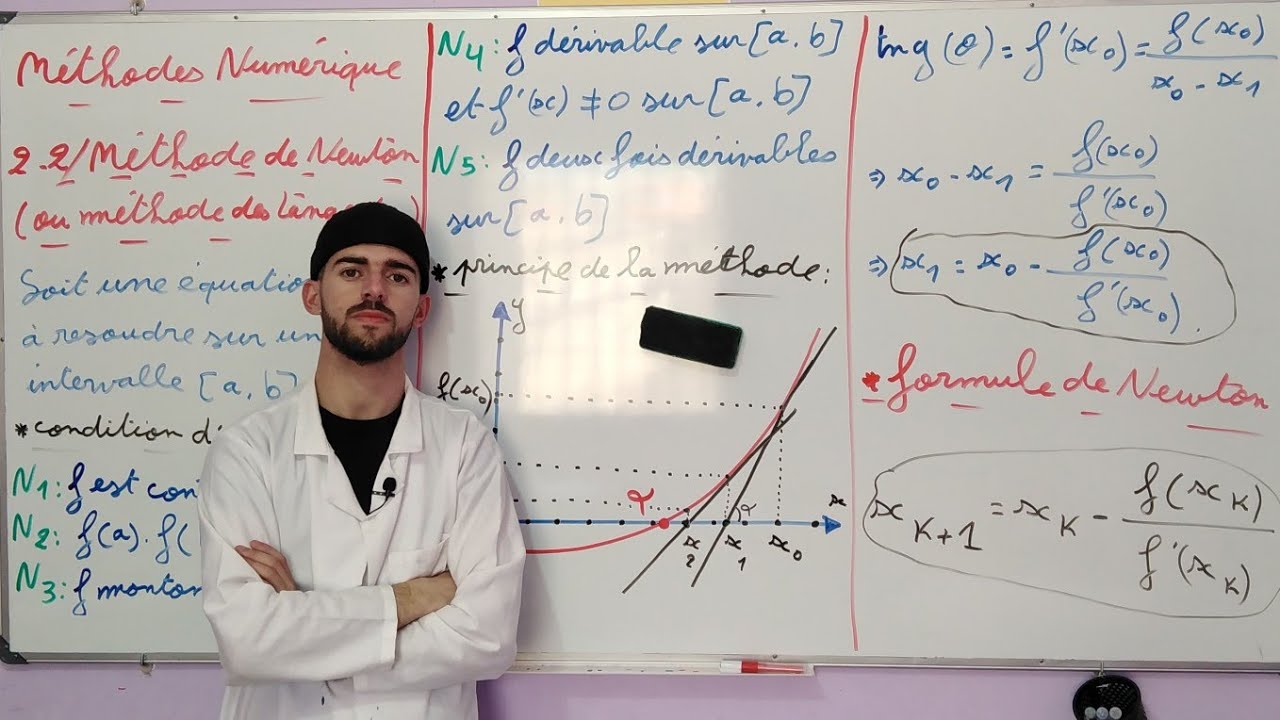 Méthodes Numérique
2.2/ Méthode de Newton
(ou méthode des
Soit une équation
à resoudre sur un
intervalle [a, b]
* condition d'
N1: f est con
N2: f(a). f(
N3: f monton
N4: f dérivable sur [a, b]
et f'(x) ≠ 0 sur [a, b]
N5: f deux fois dérivables
sur [a, b]
* principe de la méthode:
y
f(x0)
x
x2
x1
x0
tng(θ) = f'(x0) = f(x0) / (x0 - x1)
⇒ x0 - x1 = f(x0) / f'(x0)
⇒ x1 = x0 - f(x0) / f'(x0).
* formule de Newton
xK+1 = xK - f(xK) / f'(xK)